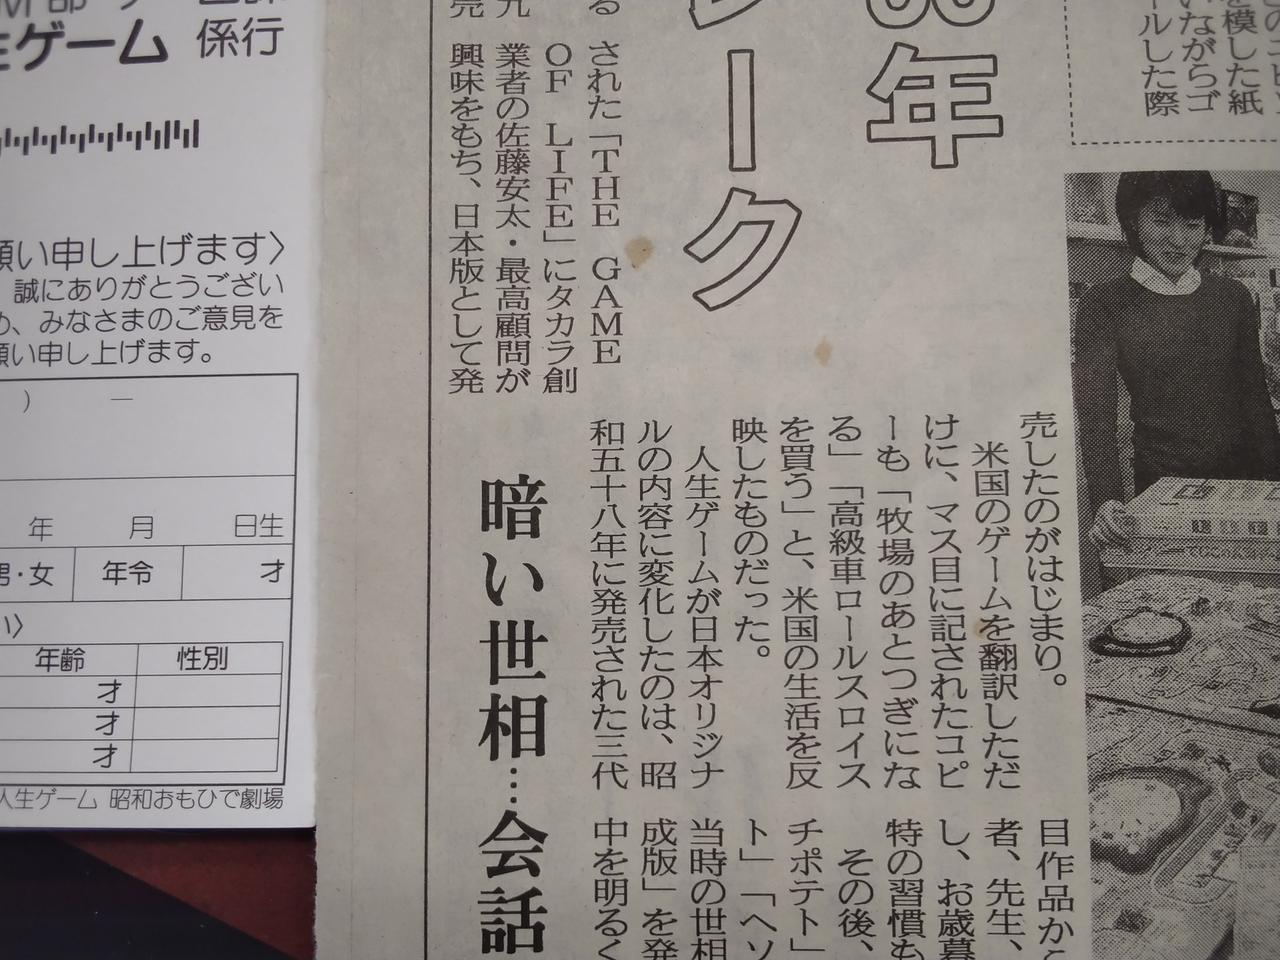 生ゲーム 係行
願い申し上げます〉
誠にありがとうござい
め、みなさまのご意見を
願い申し上げます。
） ―
年 月 日生
男・女 年令 才
い〉
年齢 性別
才
才
才
人生ゲーム 昭和おもひで劇場
を模した紙
いながらゴ
ールした際
年
ーク
された「THE GAME
OF LIFE」にタカラ創
業者の佐藤安太・最高顧問が
興味をもち、日本版として発
売したのがはじまり。
米国のゲームを翻訳しただ
けに、マス目に記されたコピ
ーも「牧場のあとつぎにな
る」「高級車ロールスロイス
を買う」と、米国の生活を反
映したものだった。
人生ゲームが日本オリジナ
ルの内容に変化したのは、昭
和五十八年に発売された三代
暗い世相…会話
目作品か
者、先生、
し、お歳暮
特の習慣も
その後、
チポテト」
ト」「ヘソ
当時の世相
成版」を発
中を明るく